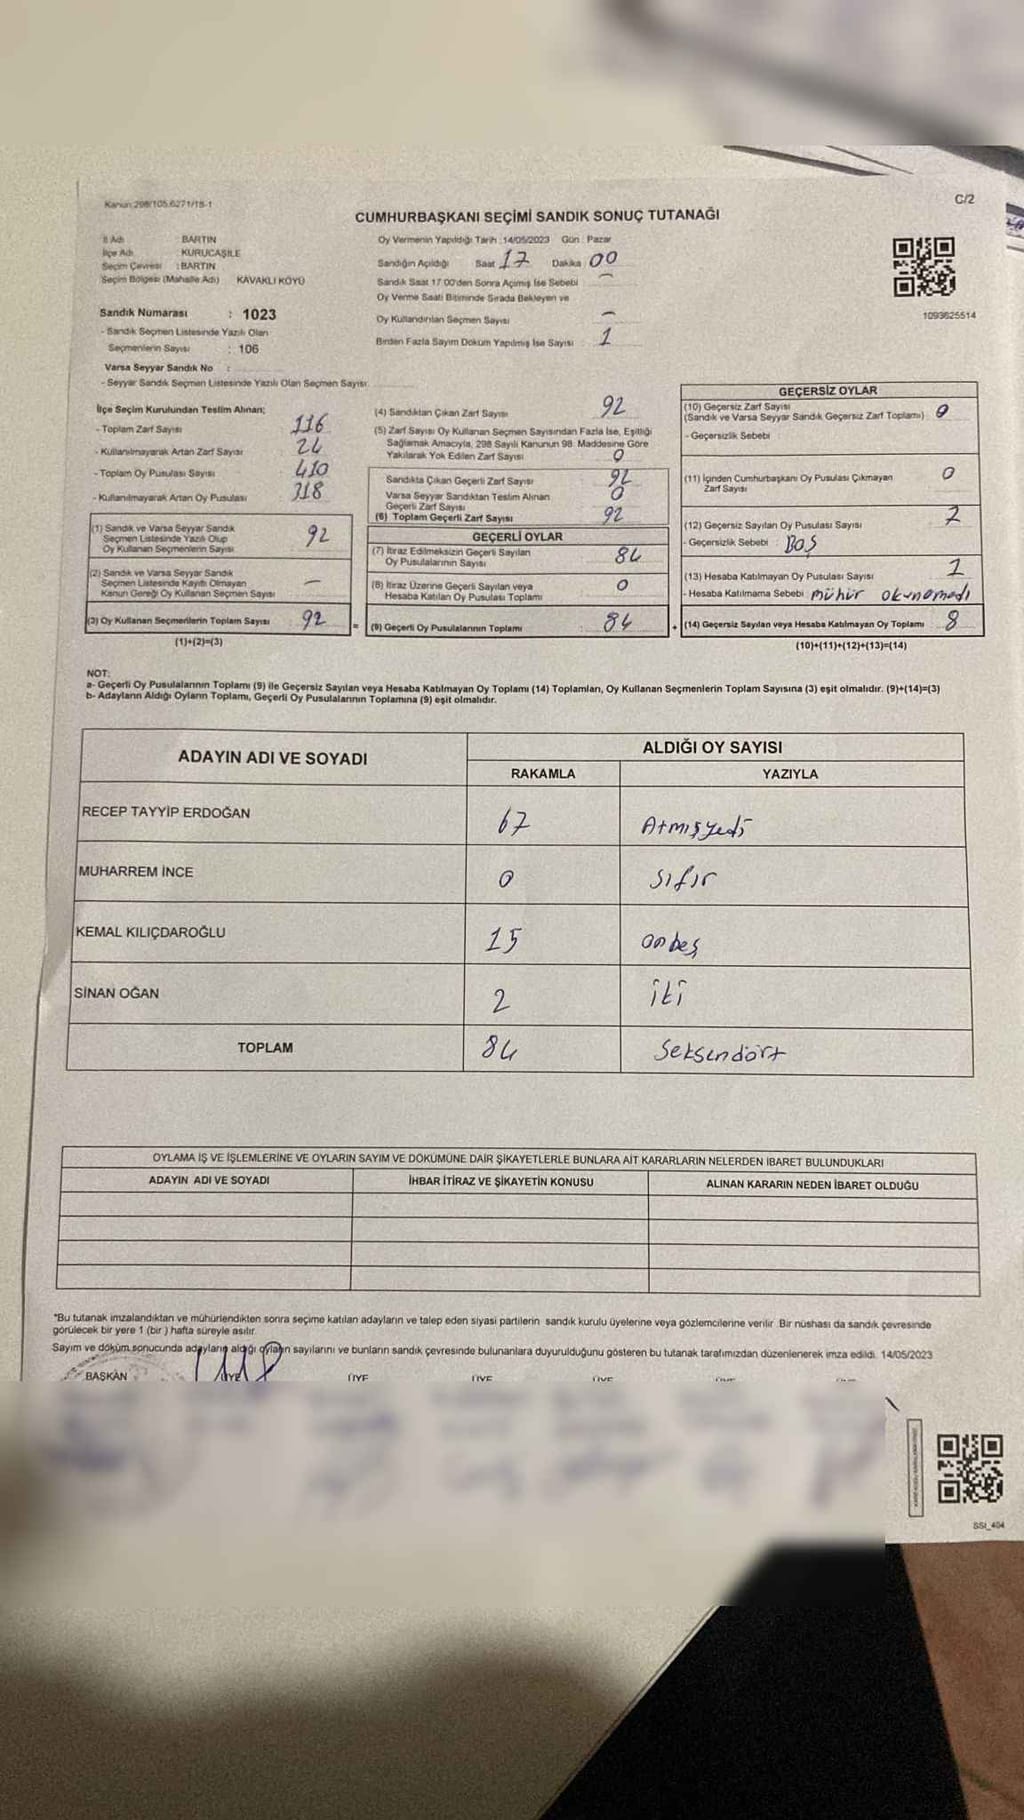 Kanun:298/105,6271/15-1
C/2
CUMHURBAŞKANI SEÇİMİ SANDIK SONUÇ TUTANAĞI
İl Adı : BARTIN
İlçe Adı : KURUCAŞİLE
Seçim Çevresi : BARTIN
Seçim Bölgesi (Mahalle Adı) KAVAKLI KÖYÜ
Sandık Numarası : 1023
- Sandık Seçmen Listesinde Yazılı Olan
Seçmenlerin Sayısı : 106
Varsa Seyyar Sandık No :
- Seyyar Sandık Seçmen Listesinde Yazılı Olan Seçmen Sayısı:
Oy Vermenin Yapıldığı Tarih : 14/05/2023 Gün : Pazar
Sandığın Açıldığı Saat 17 Dakika 00
Sandık Saat 17:00'den Sonra Açılmış İse Sebebi -
Oy Verme Saati Bitiminde Sırada Bekleyen ve
Oy Kullandırılan Seçmen Sayısı -
Birden Fazla Sayım Döküm Yapılmış İse Sayısı 1
1093625514
İlçe Seçim Kurulundan Teslim Alınan;
- Toplam Zarf Sayısı 116
- Kullanılmayarak Artan Zarf Sayısı 24
- Toplam Oy Pusulası Sayısı 410
- Kullanılmayarak Artan Oy Pusulası 318
(1) Sandık ve Varsa Seyyar Sandık
Seçmen Listesinde Yazılı Olup
Oy Kullanan Seçmenlerin Sayısı 92
(2) Sandık ve Varsa Seyyar Sandık
Seçmen Listesinde Kayıtlı Olmayan
Kanun Gereği Oy Kullanan Seçmen Sayısı -
(3) Oy Kullanan Seçmenlerin Toplam Sayısı 92 =
(1)+(2)=(3)
(4) Sandıktan Çıkan Zarf Sayısı 92
(5) Zarf Sayısı Oy Kullanan Seçmen Sayısından Fazla İse, Eşitliği
Sağlamak Amacıyla, 298 Sayılı Kanunun 98. Maddesine Göre
Yakılarak Yok Edilen Zarf Sayısı 0
Sandıkta Çıkan Geçerli Zarf Sayısı 92
Varsa Seyyar Sandıktan Teslim Alınan
Geçerli Zarf Sayısı 0
(6) Toplam Geçerli Zarf Sayısı 92
GEÇERLİ OYLAR
(7) İtiraz Edilmeksizin Geçerli Sayılan
Oy Pusulalarının Sayısı 84
(8) İtiraz Üzerine Geçerli Sayılan veya
Hesaba Katılan Oy Pusulası Toplamı 0
(9) Geçerli Oy Pusulalarının Toplamı 84 +
GEÇERSİZ OYLAR
(10) Geçersiz Zarf Sayısı
(Sandık ve Varsa Seyyar Sandık Geçersiz Zarf Toplamı) 0
- Geçersizlik Sebebi :
(11) İçinden Cumhurbaşkanı Oy Pusulası Çıkmayan
Zarf Sayısı 0
(12) Geçersiz Sayılan Oy Pusulası Sayısı 7
- Geçersizlik Sebebi : BOŞ
(13) Hesaba Katılmayan Oy Pusulası Sayısı 1
- Hesaba Katılmama Sebebi : mühür okunamadı
(14) Geçersiz Sayılan veya Hesaba Katılmayan Oy Toplamı 8
(10)+(11)+(12)+(13)=(14)
NOT:
a- Geçerli Oy Pusulalarının Toplamı (9) ile Geçersiz Sayılan veya Hesaba Katılmayan Oy Toplamı (14) Toplamları, Oy Kullanan Seçmenlerin Toplam Sayısına (3) eşit olmalıdır. (9)+(14)=(3)
b- Adayların Aldığı Oyların Toplamı, Geçerli Oy Pusulalarının Toplamına (9) eşit olmalıdır.
ADAYIN ADI VE SOYADI ALDIĞI OY SAYISI
RAKAMLA YAZIYLA
RECEP TAYYİP ERDOĞAN 67 Atmışyedi
MUHARREM İNCE 0 sıfır
KEMAL KILIÇDAROĞLU 15 onbeş
SİNAN OĞAN 2 iki
TOPLAM 84 Seksendört
OYLAMA İŞ VE İŞLEMLERİNE VE OYLARIN SAYIM VE DÖKÜMÜNE DAİR ŞİKAYETLERLE BUNLARA AİT KARARLARIN NELERDEN İBARET BULUNDUKLARI
ADAYIN ADI VE SOYADI İHBAR İTİRAZ VE ŞİKAYETİN KONUSU ALINAN KARARIN NEDEN İBARET OLDUĞU
*Bu tutanak imzalandıktan ve mühürlendikten sonra seçime katılan adayların ve talep eden siyasi partilerin sandık kurulu üyelerine veya gözlemcilerine verilir. Bir nüshası da sandık çevresinde
görülecek bir yere 1 (bir ) hafta süreyle asılır.
Sayım ve döküm sonucunda adayların aldığı oyların sayılarını ve bunların sandık çevresinde bulunanlara duyurulduğunu gösteren bu tutanak tarafımızdan düzenlenerek imza edildi. 14/05/2023
BAŞKAN ÜYE ÜYE ÜYE ÜYE
SSI_404